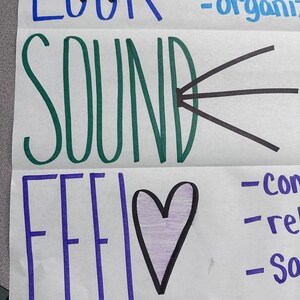 LOOK -organi
SOUND
FEEL -con
-rel
-so